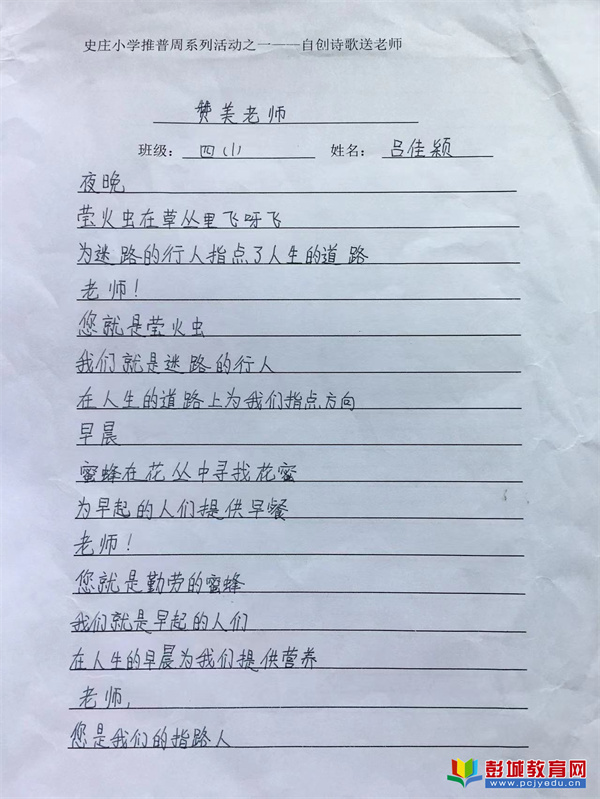 史庄小学推普周系列活动之一——自创诗歌送老师
赞美老师
班级：四（1） 姓名：吕佳颖
夜晚
莹火虫在草丛里飞呀飞
为迷路的行人指点了人生的道路
老师！
您就是莹火虫
我们就是迷路的行人
在人生的道路上为我们指点方向
早晨
蜜蜂在花丛中寻找花蜜
为早起的人们提供早餐
老师！
您就是勤劳的蜜蜂
我们就是早起的人们
在人生的早晨为我们提供营养
老师，
您是我们的指路人
彭城教育网
www.pcjyedu.cn